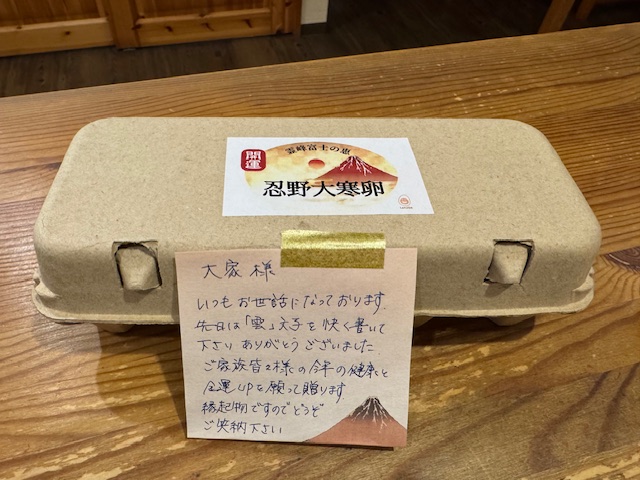 開運
霊峰富士の恵
忍野大寒卵
大家様
いつもお世話になっております。
先日は「雲」文字を快く書いて
下さりありがとうございました
ご家族皆々様の今年の健康と
金運UPを願って贈ります
縁起物ですのでどうぞ
ご笑納下さい